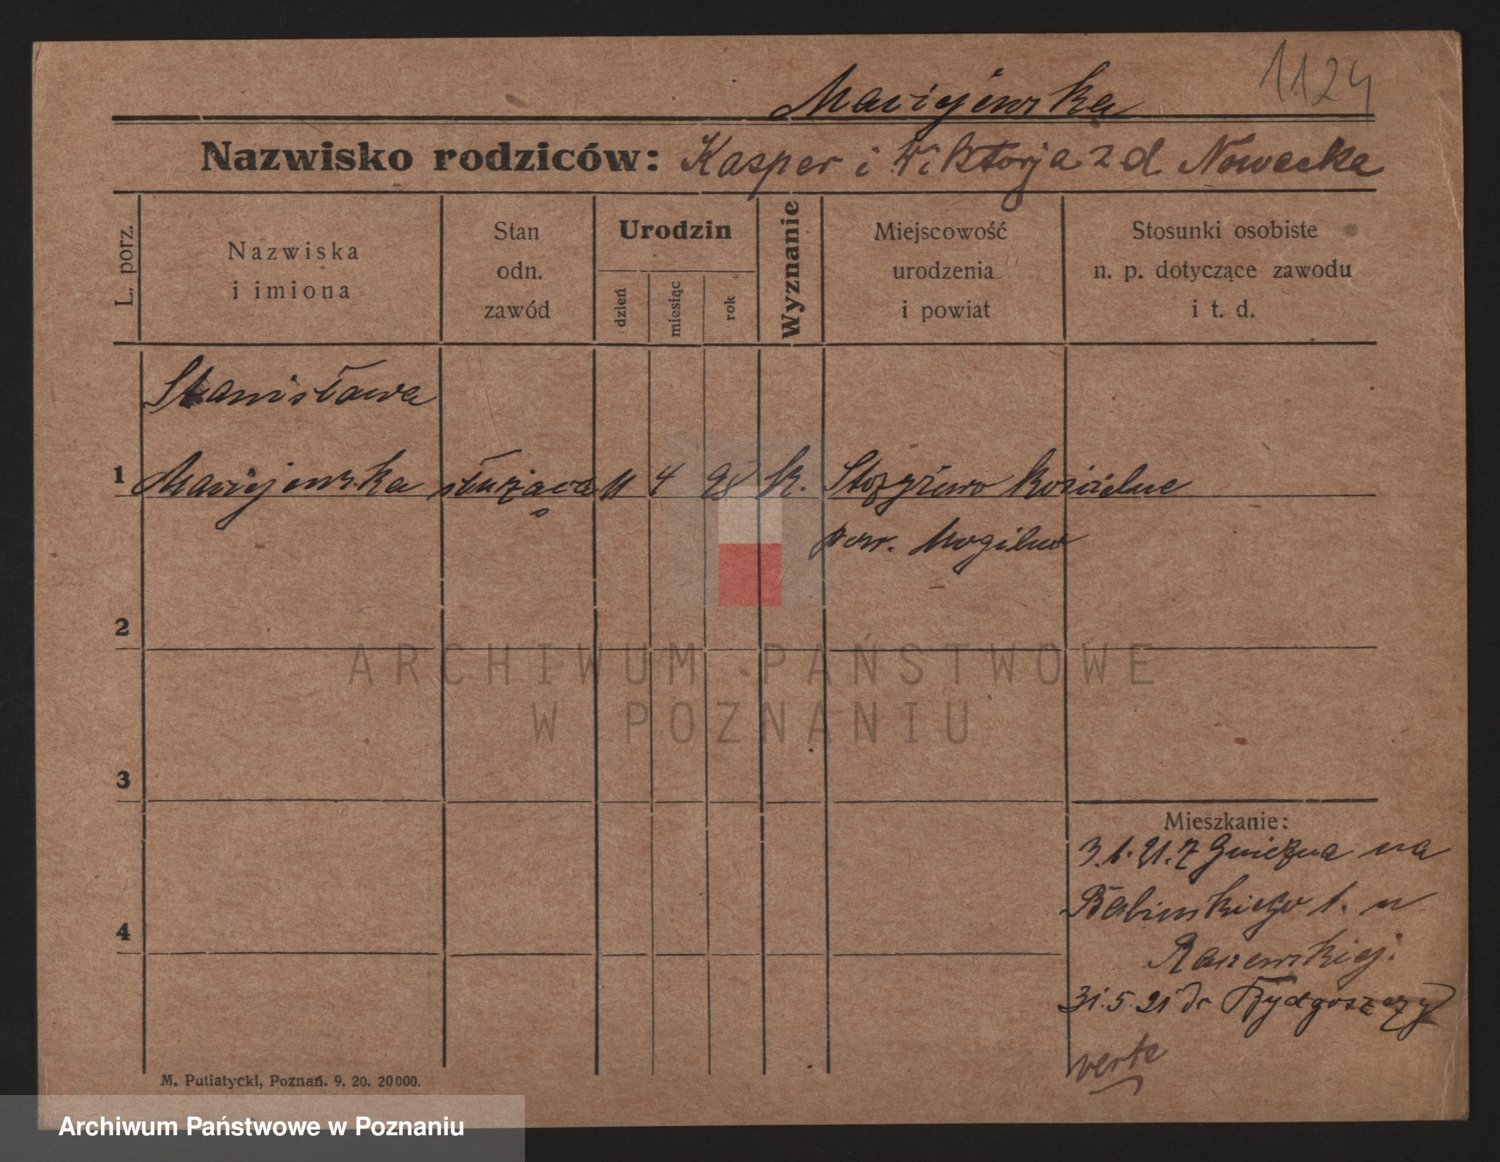 1124
Maciejewska
Nazwisko rodziców: Kasper i Wiktorja z d. Nowacka
L. porz.
Nazwiska
i imiona
Stan
odn.
zawód
Urodzin
dzień
miesiąc
rok
Wyznanie
Miejscowość
urodzenia
i powiat
Stosunki osobiste
n. p. dotyczące zawodu
i t. d.
Stanisława
1 Maciejewska służąca 11 4 98 k. Kościelne
pow. Mogilno
2
3
4
Mieszkanie:
3.1.21. z Gniezna na
Babinskiego 1. u
Raszewskiej.
31.5.21 do Bydgoszczy
verte
M. Putiatycki, Poznań. 9. 20. 20000.
ARCHIWUM PAŃSTWOWE
W POZNANIU
Archiwum Państwowe w Poznaniu